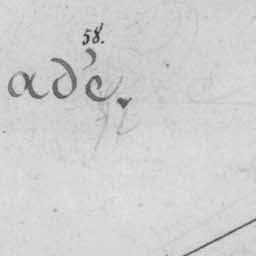 58.
adé.